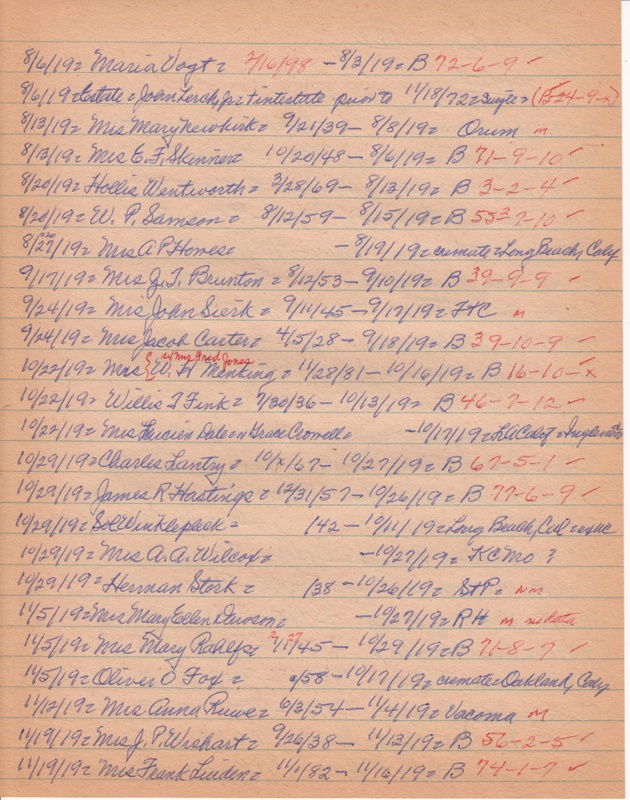 8/6/19= Maria Vogt= 7/16/98 - 8/3/19= B 72-6-9 ✓
8/6/19=Estate=John Lerch, Jr= intestate prior to 11/18/72= single= (B 24-9-x)
8/13/19= Mrs Mary Newkirk= 9/21/39- 8/8/19= Orum m
8/13/19= Mrs E. F. Skinner= 10/20/48- 8/6/19= B 71-9-10 ✓
8/20/19= Hollis Wentworth= 3/28/69- 8/13/19= B 3-2-4 ✓
8/20/19= W. P. Samson= 8/12/59- 8/15/19= B 55-7-10 ✓
8/27/19= Mrs A P Howes= -8/19/19= cremate=Long Beach, Caly
9/17/19= Mrs J. T. Brunton= 8/12/53- 9/10/19= B 39-9-9 ✓
9/24/19= Mrs John Sierk= 9/11/45- 9/17/19= FtC m
9/24/19= Mrs Jacob Carter= 4/5/28- 9/18/19= B 39-10-9 ✓
w/ Mrs Fred Jones
10/22/19= Mrs W. H Menking= 11/28/81- 10/16/19= B 16-10-x
10/22/19= Willis T Fink= 7/30/36- 10/13/19= B 46-7-12 ✓
10/22/19= Mrs Lucien Dale=n Grace Crowell= -10/17/19= LA
10/29/19=Charles Lantry= 10/x/67- 10/27/19= B 67-5-1 ✓
10/29/19=James R Hastings= 12/31/57- 10/26/19= B 77-6-9 ✓
10/29/19=Sol Winklepleck= /42- 10/11/19=Long Beach, Cal
10/29/19= Mrs A. A. Wilcox= -10/27/19= KC Mo ?
10/29/19= Herman Stork= /38- 10/26/19= StP= nm
11/5/19=Mrs Mary Ellen Dawson= -10/27/19= RH m no data
11/5/19= Mrs Mary Rahlfs= /45- 10/29/19= B 71-8-7 ✓
11/5/19= Oliver O Fox= /58- 10/17/19= cremate=Oakland, Caly
11/12/19= Mrs Anna Ruwe= 6/3/54- 11/4/19= Vacoma m
11/19/19= Mrs J. P. Wishart= 9/26/38- 11/13/19= B 56-2-5 ✓
11/19/19= Mrs Frank Linden= 11/1/82- 11/16/19= B 74-1-7 ✓